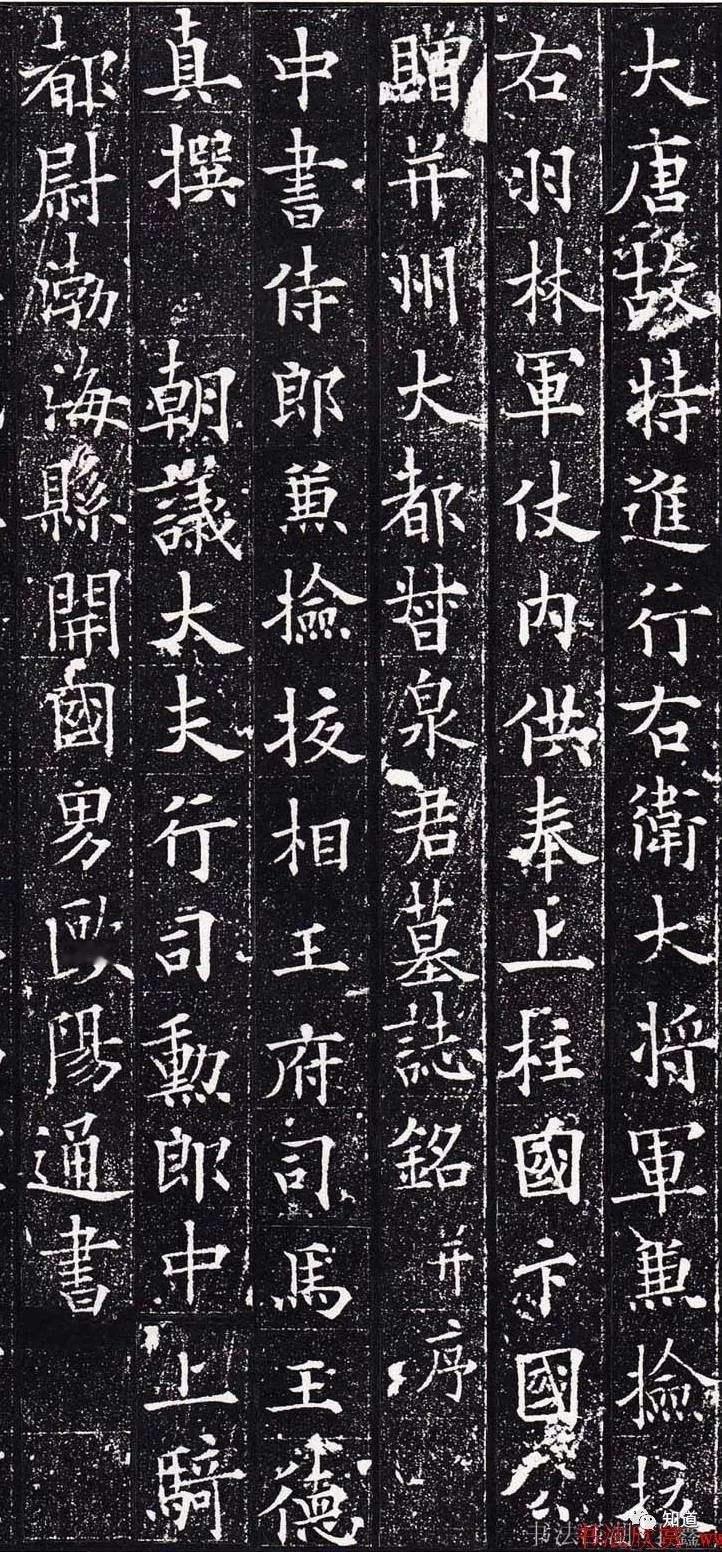 大唐故特進行右衛大將軍兼撿挍
右羽林軍仗內供奉上柱國卞國公
贈并州大都督泉君墓誌銘并序
中書侍郎兼撿挍相王府司馬王德
真撰 朝議大夫行司勳郎中上騎
都尉渤海縣開國男歐陽通書
知道